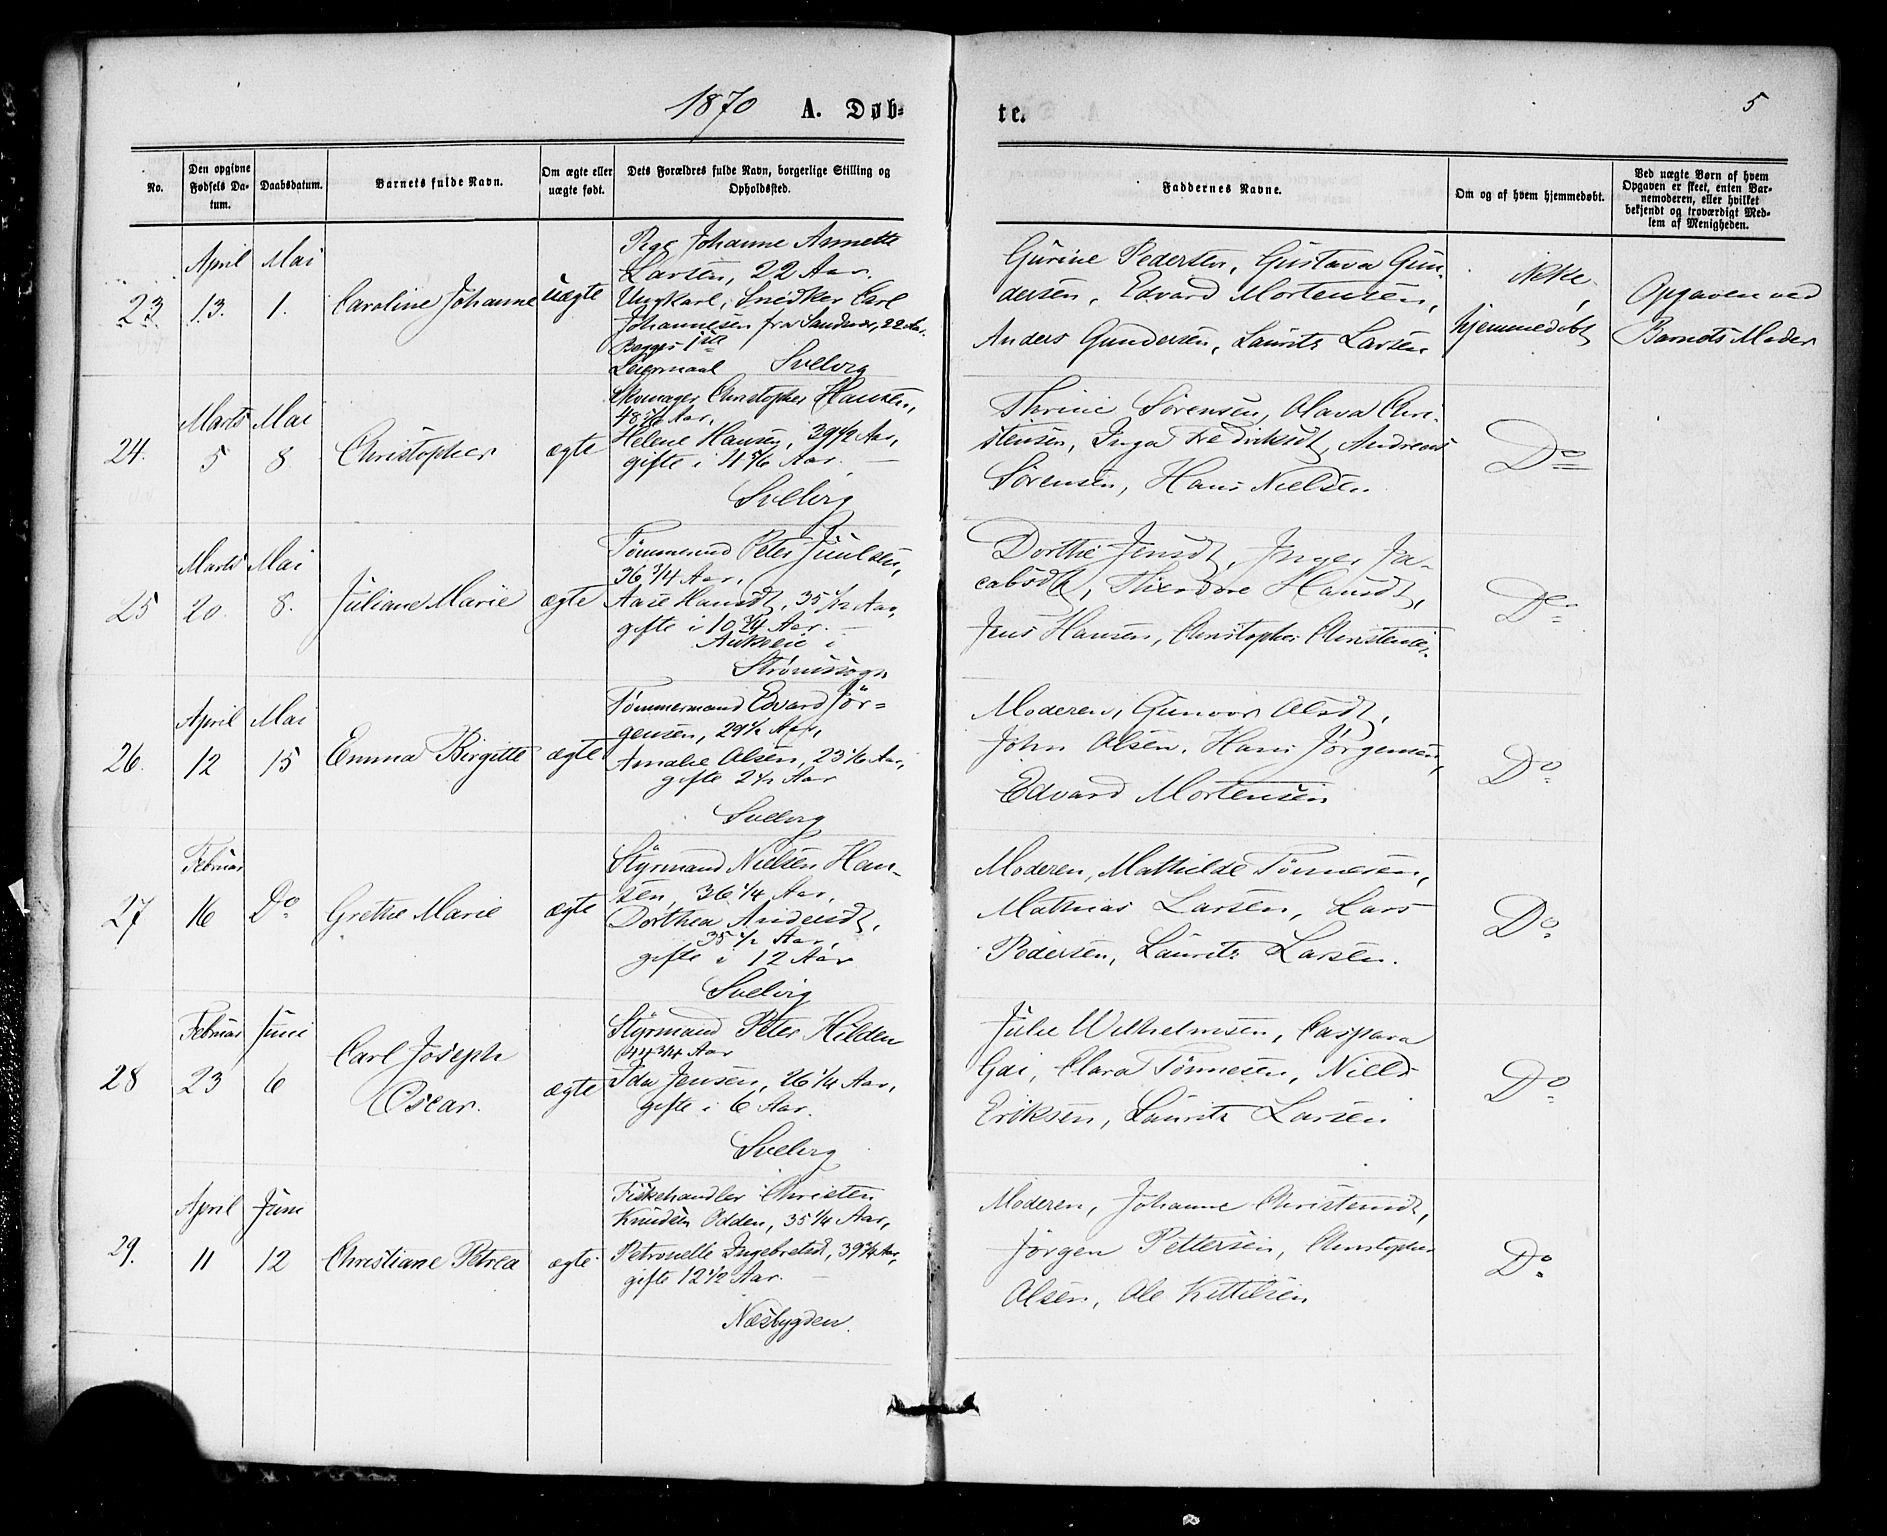 1870 A. Døb-
te. 5
No.
Den opgivne
Fødsels Da-
tum.
Daabsdatum.
Barnets fulde Navn.
Om ægte eller
uægte født.
Dets Forældres fulde Navn, borgerlige Stilling og
Opholdssted.
Faddernes Navne.
Om og af hvem hjemmedøbt.
Ved uægte Børn af hvem
Opgaven er skeet, enten Bar-
nemoderen, eller hvilket
bekjendt og troværdigt Med-
lem af Menigheden.
23.
April
13.
Mai
1.
Caroline Johanne
uægte
Pige Johanne Annette
Larsen, 22 Aar.
Ungkarl, Snedker Carl
Johannesen fra 22 Aar.
Begges 1ste
Leiermaal Svelvig
Gurine Pedersen, Gustava Gun-
dersen, Edvard Mortensen,
Anders Gundersen, Laurits Larsen
Ikke
hjemmedøbt
Opgaven ved
Barnets Moder
24.
Marts
5
Mai
8
Christopher
ægte
Skomager Christopher Hansen,
48 Aar,
Helene Hansen, 39 1/2 Aar,
gifte i 4 5/6 Aar. —
Svelvig
Thrine Sørensen, Olava Chri-
stensen, Inga Fredriksdt, Andreas
Sørensen, Hans Nielsen
Do
25
Marts
20.
Mai
8.
Juliane Marie
ægte
Tømmermd Peter Juulsen,
36 3/4 Aar,
Aase Hansdt, 35 1/2 Aar,
gifte i 10 3/4 Aar. —
i
Strømssogn
Dorthe Jensdt, Inger Ja-
cobsdt, Theodore Hansdt,
Jens Hansen, Christopher Christensen.
Do
26.
April
12
Mai
15
Emma Birgitte
ægte
Tømmermand Edvard Jör-
gensen, 29 1/2 Aar,
Amalie Olsen, 23 1/6 Aar,
gifte 2 1/2 Aar
Svelvig
Moderen, Gunvor Olsdt,
John Olsen, Hans Jörgensen,
Edvard Mortensen
Do
27
Februar
16
Do
Grethe Marie
ægte
Styrmand Nielsen Han-
sen, 36 1/4 Aar,
Dorthea Andersdt,
35 1/2 Aar,
gifte i 12 Aar
Svelvig
Moderen, Mathilde Tönnesen,
Mathias Larsen, Lars
Pedersen, Laurits Larsen.
Do
28
Februar
23
Juni
6
Carl Joseph
Oscar.
ægte
Styrmand Peter Hilden
44 3/4 Aar
Ida Jensen, 26 1/4 Aar,
gifte i 6 Aar.
Svelvig
Julie Wilhelmsen, Caspara
Gai, Clara Tönnesen, Niels
Eriksen, Laurits Larsen
Do
29.
April
11
Juni
12
Christiane Petrea
ægte
Fiskehandler Christen
Knudsen Odden, 35 1/4 Aar,
Petronelle Ingebretsdt, 39 3/4 Aar,
gifte 12 1/2 Aar. —
Næsbygden.
Moderen, Johanne Christensdt,
Jörgen Pettersen, Christopher
Olsen, Ole Kittilsen
Do